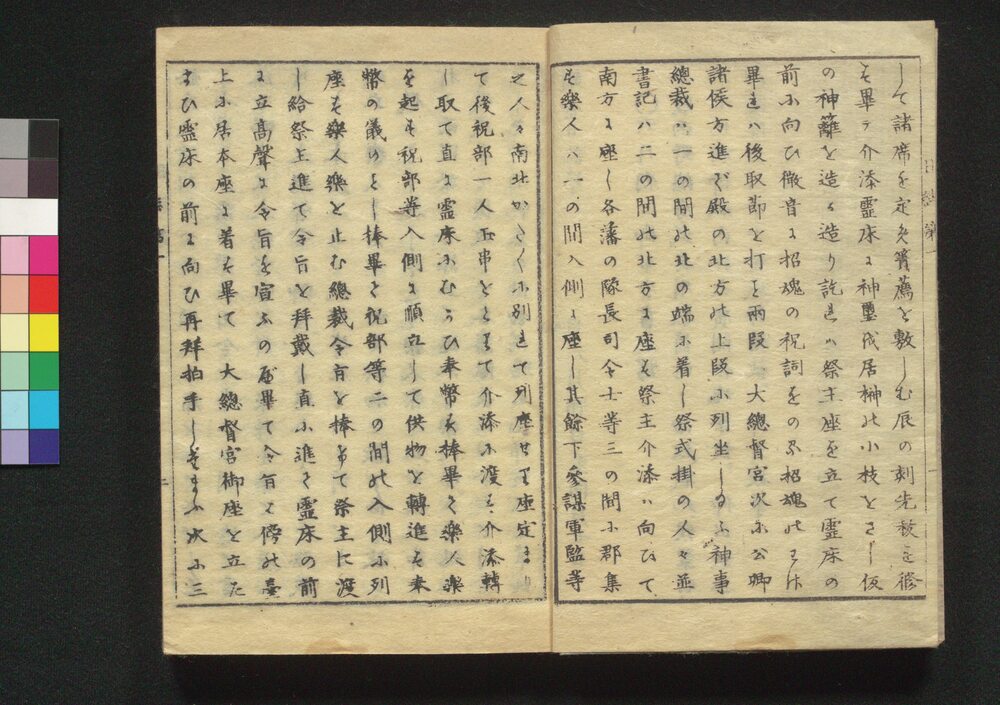 して諸席を定め簀薦を敷しむ辰の刻先秡を脩
も畢て介添霊床に神璽代居榊の小枝をさし仮
の神籬を造る造り訖れは祭主座を立て霊床の
前に向ひ微音に招魂の祝詞をのる招魂の
畢れは後取節を打こと両段 大總督宮次に公卿
諸侯方進て殿の北方の上段に列坐し 神事
總裁は一の間の北の端に着し祭式掛の人々並
書記ハ二の間の北方に座も祭主介添ハ向ひて
南方に座し各藩の隊長司令士等三の間に郡集
も樂人ハ一の間入側に座し其餘下参謀軍監等
之人々南北かく に別れて列座せり座定まり
て後祝部一人玉串をとりて介添に渡も介添轉
し取て直に霊床にむかひ奉幣も捧畢く樂人樂
を起も祝部等入側に順立して供物を轉進も奉
幣の義のとし捧畢て祝部等二の間の入側に列
座も樂人樂を止む總裁令旨を捧もて祭主に渡
し給祭主進て令旨を拜戴し直に進て霊床の前
に立高聲に令旨を宣ふの 畢て令旨を傍の臺
上に居本座に着も畢て 大總督宮御座を立た
まひ霊床の前に向ひ再拜拍手し たまふ次に三